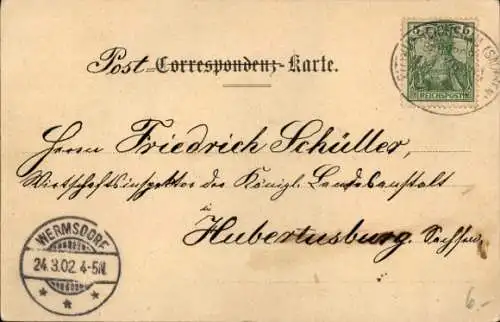 5
REICHSPOST
Post-Correspondenz-Karte.
Herrn Friedrich Schüller,
Wirtschaftsinspektor der Königl. Landesanstalt
in
Hubertusburg. Sachsen
WERMSDORF
24.3.02.4-5N.
6.-